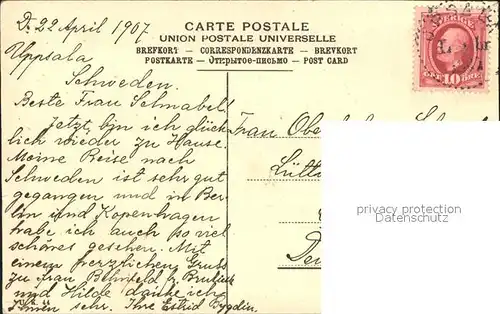 D. 22 April 1907.
CARTE POSTALE
UNION POSTALE UNIVERSELLE
BREFKORT – CORRESPONDENZKARTE – BREVKORT
POSTKARTE – Открытое письмо – POST CARD
SVERIGE
10 ÖRE
Uppsala
Schweden.
Beste Frau Schnabel!
Jetzt bin ich glück-
lich wieder zu Hause.
Meine Reise nach
Schweden ist sehr gut
gegangen und in Ber-
lin und Kopenhagen
habe ich auch so viel
schönes gesehen. Mit
einem herzlichen Gruss
zu Frau
und Hilde danke ich
Ihnen sehr. Ihre Estrid Bygdin.
Frau
privacy protection